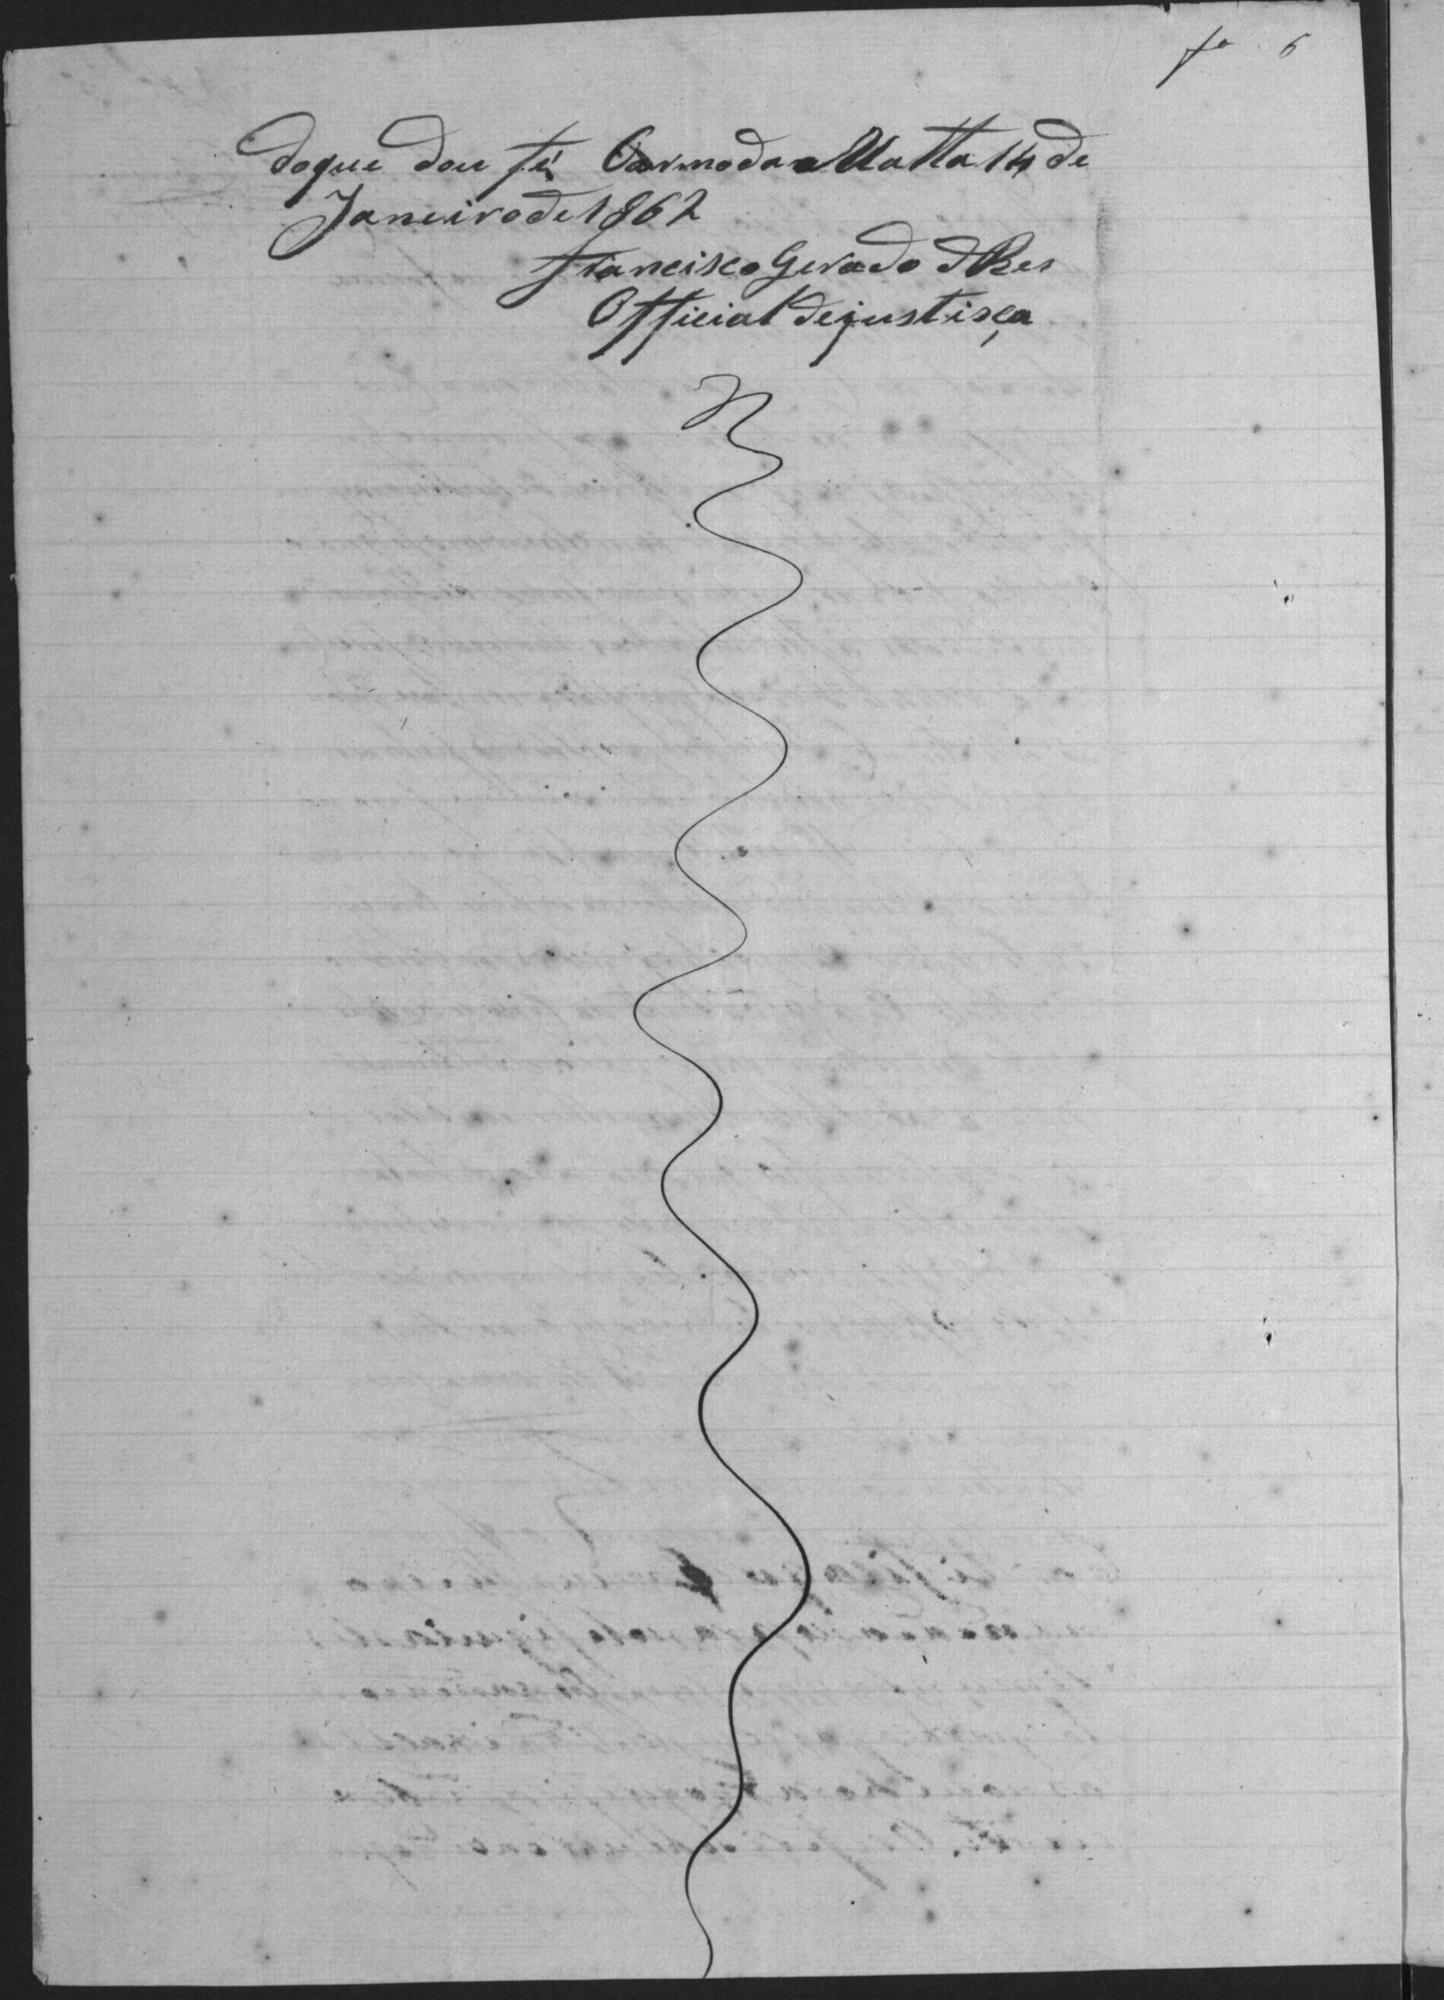 fº 6
doque dou fé Carmo da Matta 14 de
Janeiro de 1862
Francisco Gerado d Res
Official de justisça